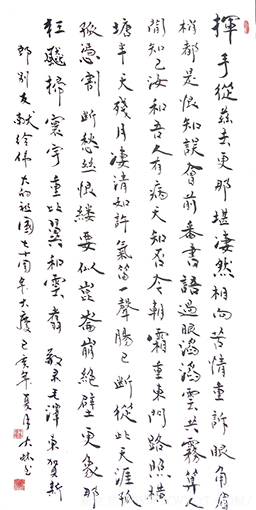 揮手從兹去更那堪凄然相向苦情重訴眼角眉
梢都是恨知誤會前番書語過眼滔滔雲共霧算人
間知己汝和吾人有病天知否今朝霜重東門路照橫
塘半天殘月凄清如許氣笛一聲腸已斷從此天涯孤
旅憑割斷愁絲恨縷要似崑崙崩絕壁更象那
狂飈掃寰宇重比翼和雲翥 敬录毛澤東賀新
郎别友獻給偉大的祖國七十周年大慶己亥年夏月